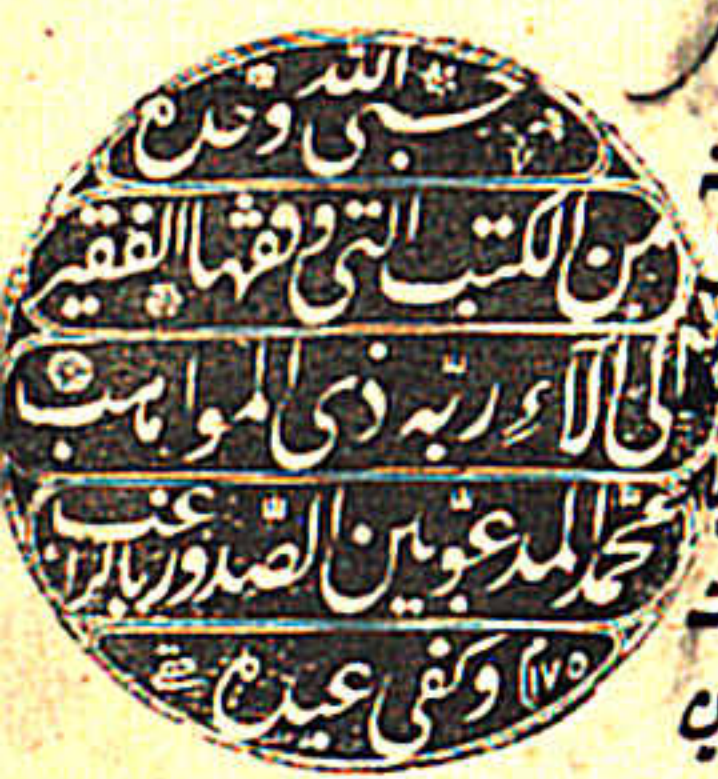 حسبي الله وحده
من الكتب التي وقفها الفقير
الى آلاء ربّه ذى المواهب
محمّد المدعوّ بين الصّدور بالراغب
وكفى عبده